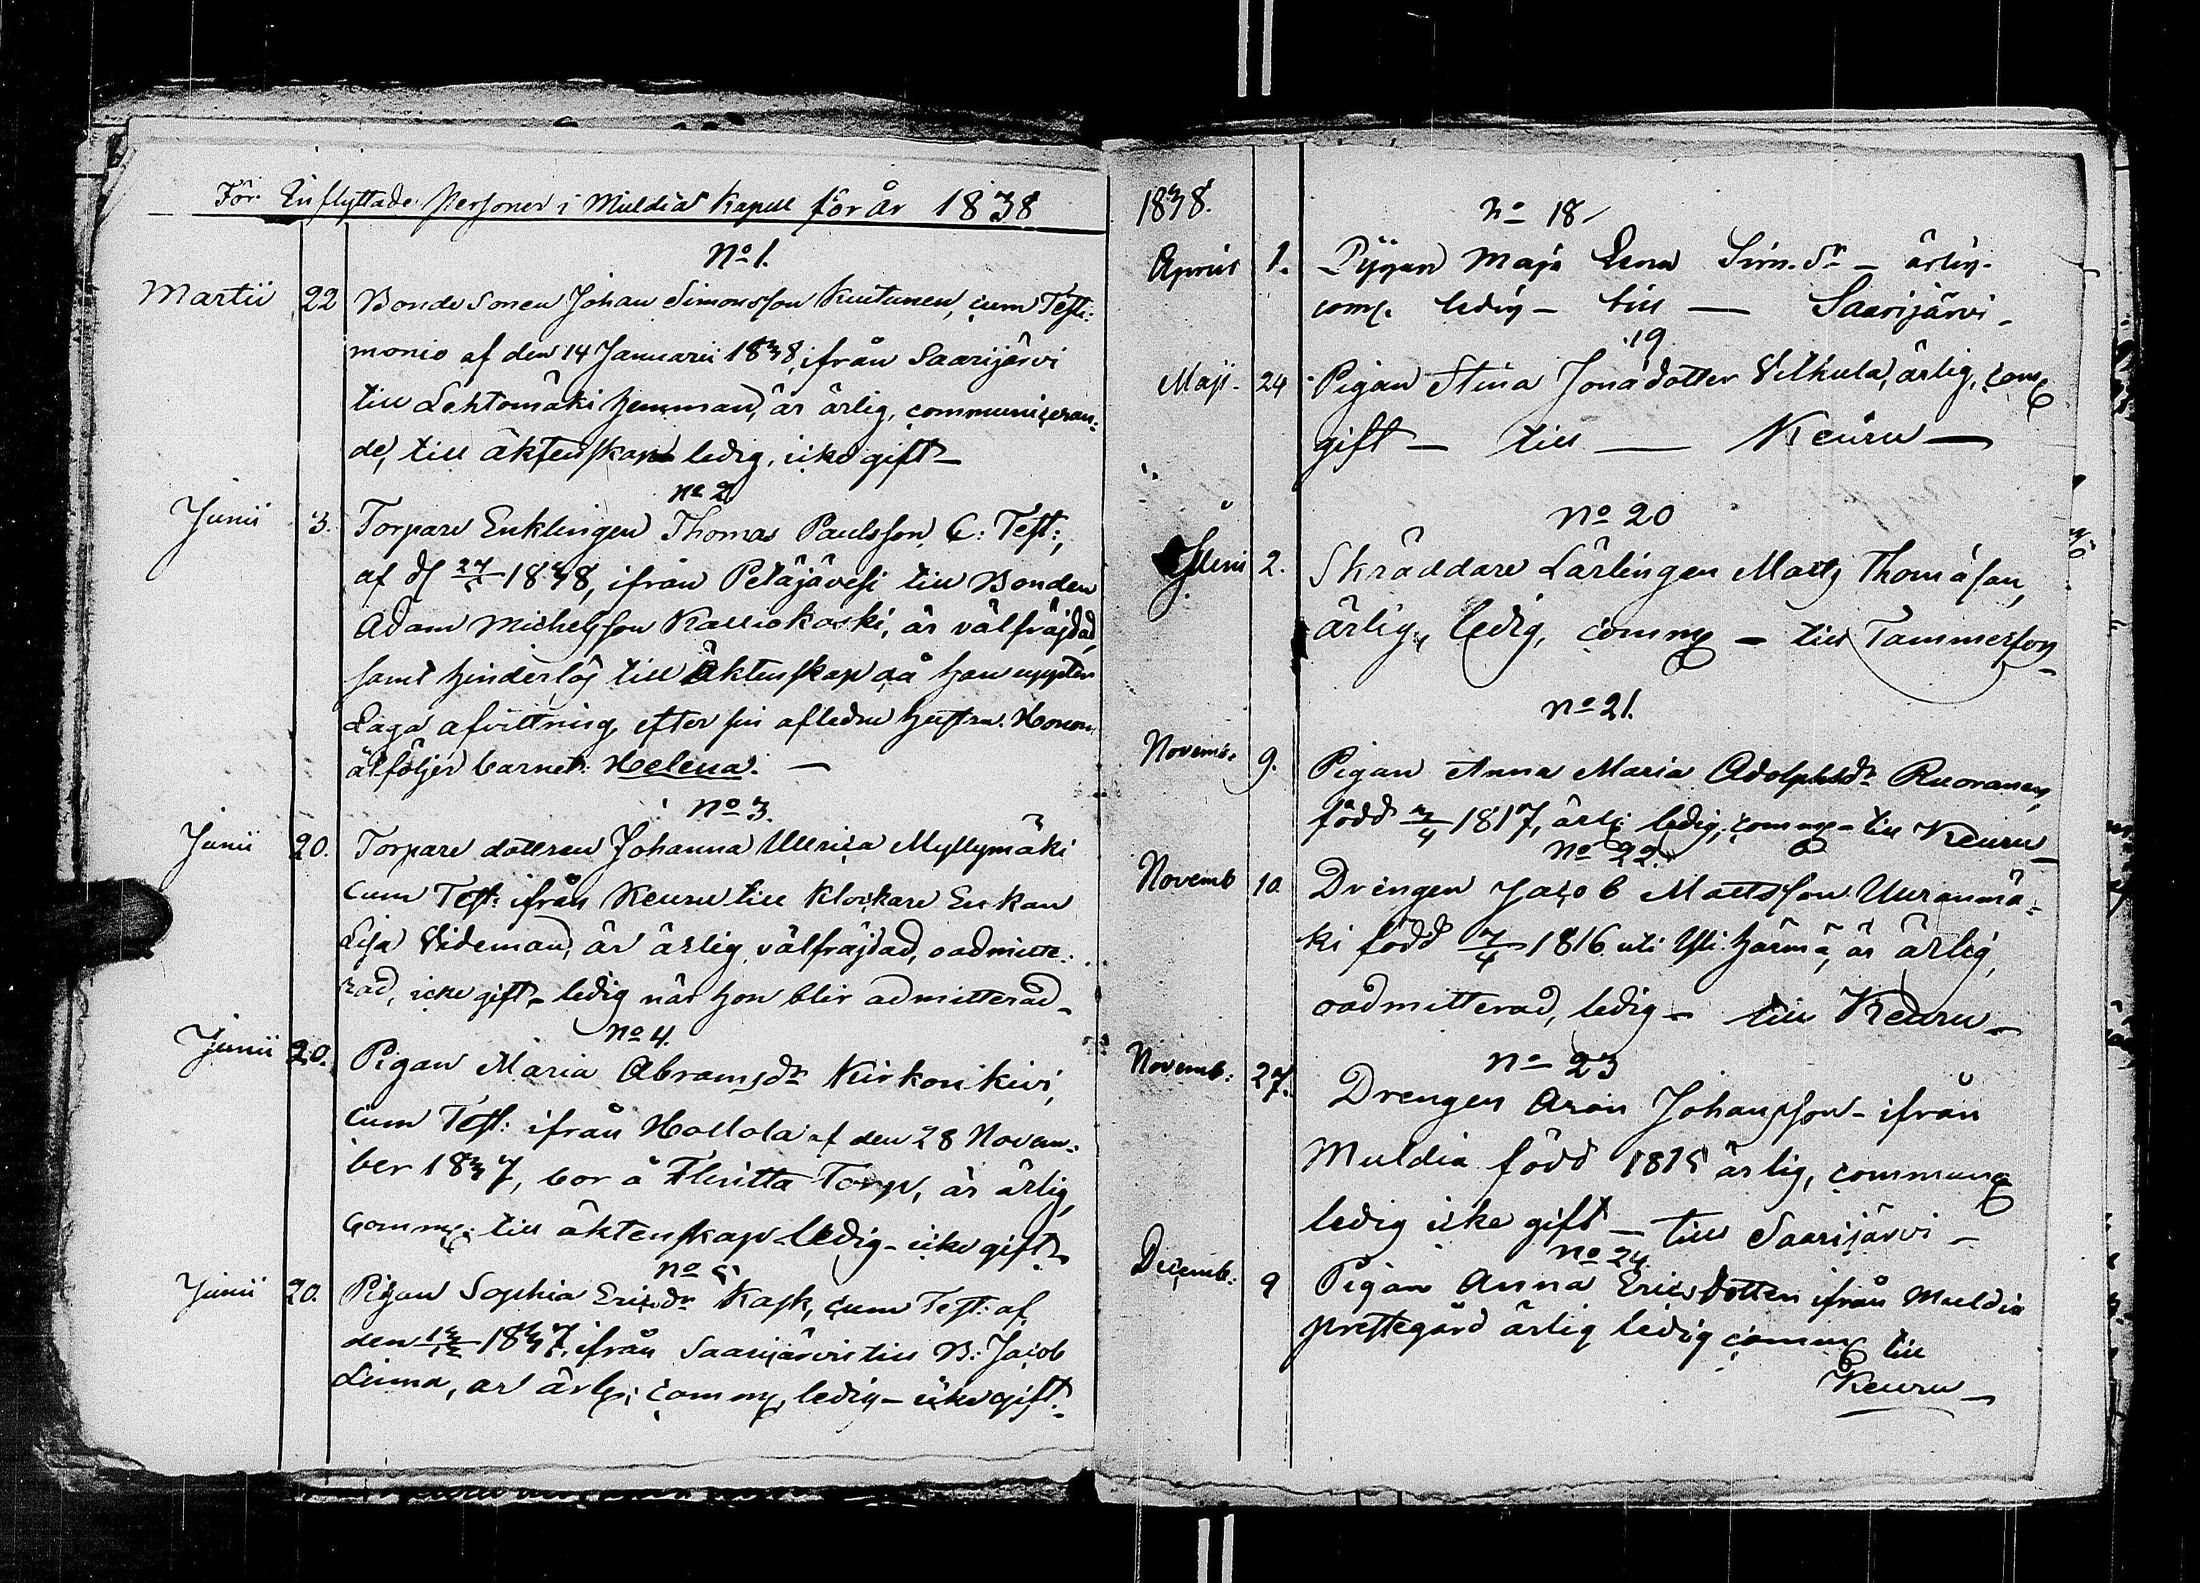 För Inflyttade Personer i Muldia Kapell för år 1838
No 1.
Martii 22 Bonde Sonen Johan Simonsson Kuitunen, cum Testi:
monio af den 14 Januarii 1838, ifrån Saarijärvi
till Lehtomäki hemman, är ärlig, communiceran:
de, till äktenskap ledig, icke gift –
No 2.
Junii 3. Torpare Enklingen Thomas Paulsson, C: Test:,
af d 1838, ifrån Petäjävesi till Bonden
Adam Michelsson Kalliokoski, är välfräjdad,
samt hinderlös till Äktenskap då han
Laga afvittring efter sin aflidne hustru. Honom
åtföljer barnet: Helena. –
No 3.
Junii 20. Torpare dottren Johanna Ullrica Myllymäki
cum Test: ifrån Keuru till Klockare Enkan
Lisa Videman, är ärlig, välfräjdad, oadmitte:
rad, icke gift – ledig når hon blir admitterad –
No 4.
Junii 20. Pigan Maria Abramsdr Kirkonkivi,
cum Test: ifrån Hollola af den 28 Novem:
ber 1837, bor å Torp, är ärlig,
comm: till äktenskap ledig – icke gift –
No 5
Junii 20. Pigan Sophia Ericsdr Kask, cum Test: af
den 1837, ifrån Saarijärvi till B: Jacob
Liima, är ärlig, comm, ledig – icke gift –
1838.
No 18
Aprill 1. Pigan Maja Lena Sim.dr – ärlig.
comm. ledig – till — Saarijärvi –
19
Maji – 24 Pigan Stina Jonædotter Vilkula, ärlig, comm
gift – till — Keuru —
No 20
Junii 2. Skräddare Lärlingen Matts Thomason,
ärlig, ledig, comm – till Tammerfors –
No 21.
Novemb. 9. Pigan Anna Maria Adolphsdr Ruoranen,
född 3/4 1817, ärlig, ledig, comm – till Keuru –
No 22.
Novemb 10. Drengen Jacob Mattsson Uuranmä:
ki född 7/4 1816 uti Yli härmä, är ärlig,
oadmitterad, ledig – till Keuru –
No 23
Novemb: 27. Drengen Aron Johansson – ifrån
Muldia född 1815 ärlig, commun
ledig icke gift – till Saarijärvi –
No 24.
Decemb: 9 Pigan Anna Ericsdotter ifrån Muldia
prestegård ärlig ledig comm till
Keuru –